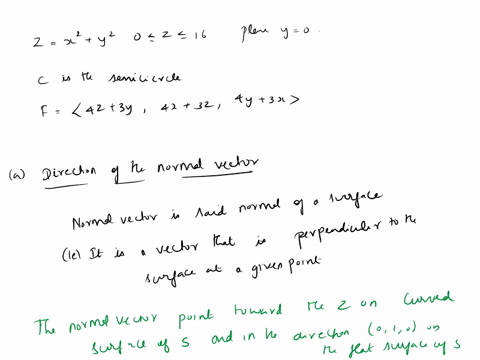 Z = x² + y² 0 ≤ Z ≤ 16 plane y=0.
C is the semicircle
F = < 4Z+3y , 4x+3Z, 4y+3x >
(a) Direction of the normal vector
Normal vector is said normal of a surface
(ie) It is a vector that is perpendicular to the
surface at a given point
The normal vector point toward the Z on curved
surface of S and in the direction (0,1,0) on
the flat surface of S